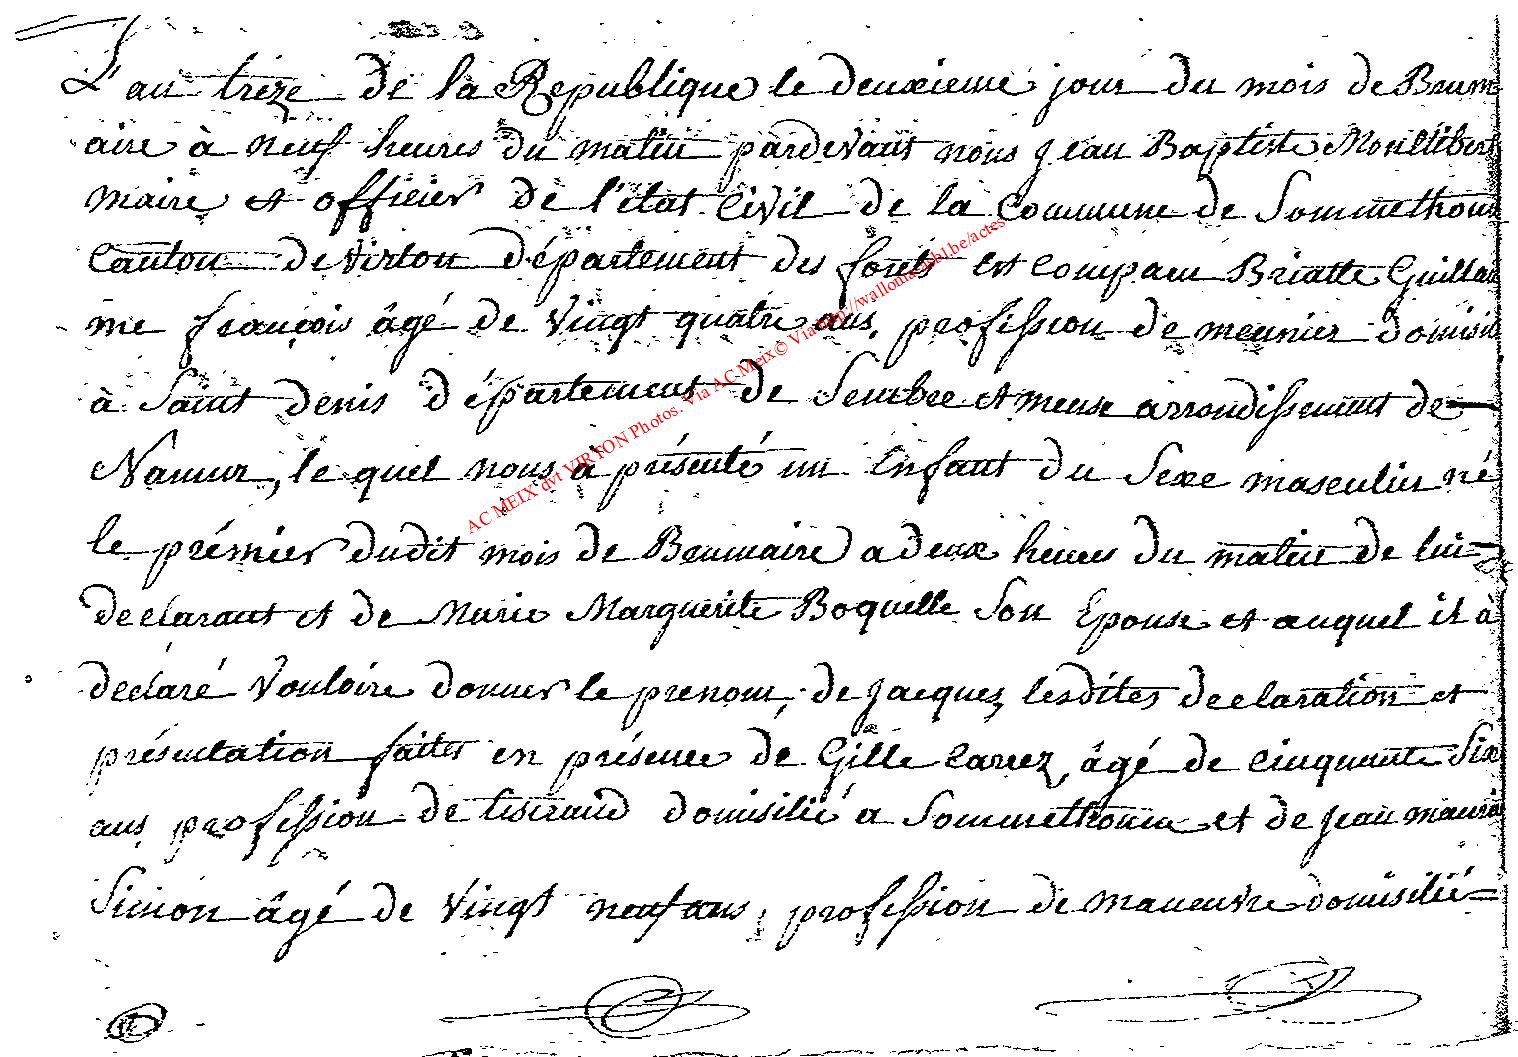 L'an treze de la Republique le deuxieme jour du mois de Brum
aire à neuf heures du matin pardevant nous Jean Baptiste Montlibert
maire et officier de l'état Civil de la Commune de Sommethonne
Canton de Virton département des forêts est Comparu Briatte Guillau
me françois âgé de Vingt quatre ans, profession de meunier domisil
à Saint denis département de Sembre et meuse arrondissement de
Namur, le quel nous à présenté un Enfant du Sexe masculin né
le prémier dudit mois de Brumaire a deux heures du matin de lui
declarant et de Marie Marguerite Boquelle Son Epouse et auquel il à
déclaré Vouloire donner le prenom, de Jacques, lesdites declaration et
présentation faites en présence de Gille Carrez, âgé de Cinquante Six
ans, profession de tisseraud domisilié a Sommethonne et de Jean
Simon âgé de Vingt neuf ans, profession de maneuvre domisilié
AC MEIX dvt VIRTON Photos. Via AC Meix© Via